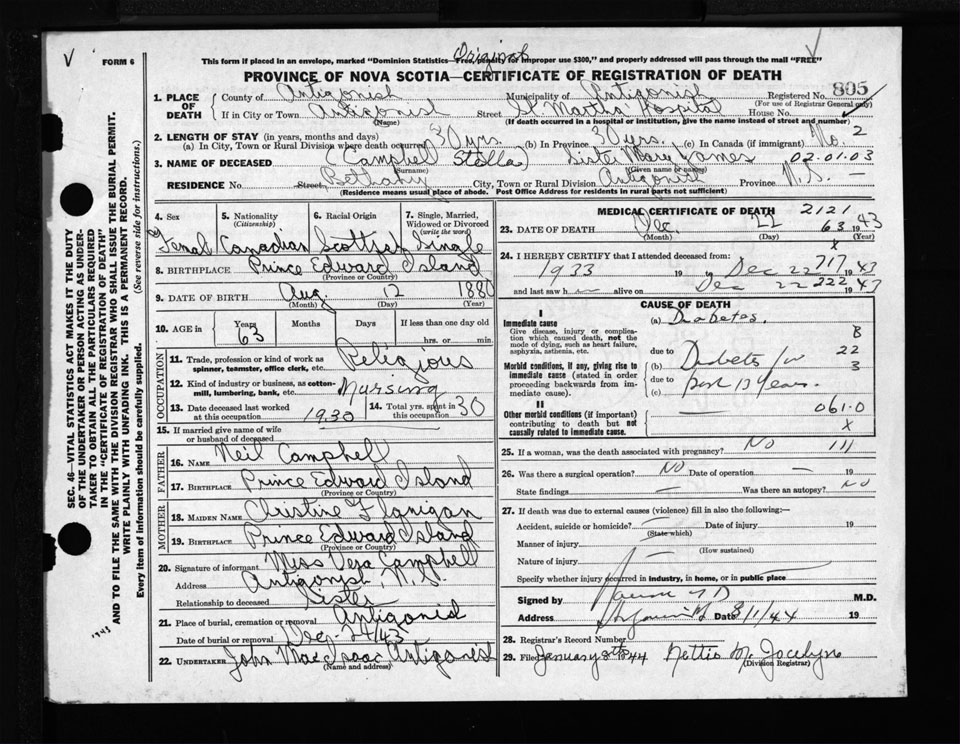 Original
FORM 6
This form if placed in an envelope, marked "Dominion Statistics—Free, penalty for improper use $300," and properly addressed will pass through the mail "FREE"
PROVINCE OF NOVA SCOTIA—CERTIFICATE OF REGISTRATION OF DEATH
1. PLACE OF DEATH
County of Antigonish Municipality of Antigonish Registered No. 805
(For use of Registrar General only)
If in City or Town Antigonish Street St Martha Hospital House No.
(Name) (If death occurred in a hospital or institution, give the name instead of street and number)
2. LENGTH OF STAY (in years, months and days)
(a) In City, Town or Rural Division where death occurred 30 yrs. (b) In Province 30 yrs. (c) In Canada (if immigrant) No. 2
3. NAME OF DECEASED (Campbell Stella) Sister Mary James 02.01.03
(Surname) (Given name or names)
RESIDENCE No. Street Bethany City, Town or Rural Division Antigonish Province N.S. —
(Residence means usual place of abode. Post Office Address for residents in rural parts not sufficient)
4. Sex
Female
5. Nationality
(Citizenship)
Canadian
6. Racial Origin
Scottish
7. Single, Married, Widowed or Divorced
(write the word)
Single
8. BIRTHPLACE Prince Edward Island
(Province or Country)
9. DATE OF BIRTH Aug. 12 1880
(Month) (Day) (Year)
10. AGE in Years Months Days If less than one day old
63 hrs. or min.
OCCUPATION
11. Trade, profession or kind of work as spinner, teamster, office clerk, etc. Religious
12. Kind of industry or business, as cotton-mill, lumbering, bank, etc. Nursing
13. Date deceased last worked at this occupation 1930
14. Total yrs. spent in this occupation 30
15. If married give name of wife or husband of deceased
FATHER
16. NAME Neil Campbell
17. BIRTHPLACE Prince Edward Island
(Province or Country)
MOTHER
18. MAIDEN NAME Christine Flanigan
19. BIRTHPLACE Prince Edward Island
(Province or Country)
20. Signature of informant Miss Vera Campbell
Address Antigonish N.S.
Relationship to deceased Sister
21. Place of burial, cremation or removal Antigonish
Date of burial or removal Dec. 24/43
22. UNDERTAKER John MacIsaac Antigonish
(Name and address)
MEDICAL CERTIFICATE OF DEATH 2121
23. DATE OF DEATH Dec. 22 63 1943
(Month) (Day) (Year)
X
24. I HEREBY CERTIFY that I attended deceased from:
1933 19 to Dec 22 717 1943
and last saw h alive on Dec 22 222 1943
CAUSE OF DEATH
I
Immediate cause
Give disease, injury or complication which caused death, not the mode of dying, such as heart failure, asphyxia, asthenia, etc.
(a) Diabetes.
8
due to
22
Morbid conditions, if any, giving rise to immediate cause (stated in order proceeding backwards from immediate cause).
(b) Diabetes for
3
due to
(c) past 13 years.
II
Other morbid conditions (if important) contributing to death but not causally related to immediate cause.
061.0
X
25. If a woman, was the death associated with pregnancy? No 111
26. Was there a surgical operation? NO Date of operation — 19
State findings — Was there an autopsy? NO
27. If death was due to external causes (violence) fill in also the following:—
Accident, suicide or homicide? — Date of injury 19
(State which)
Manner of injury
(How sustained)
Nature of injury
Specify whether injury occurred in industry, in home, or in public place
Signed by M.D.
Address Date 3/1/44 19
28. Registrar's Record Number
29. Filed January 8th 1944 Nettie M. Jocelyn
(Division Registrar)
SEC. 46—VITAL STATISTICS ACT MAKES IT THE DUTY
OF THE UNDERTAKER OR PERSON ACTING AS UNDER-
TAKER TO OBTAIN ALL THE PARTICULARS REQUIRED
IN THE "CERTIFICATE OF REGISTRATION OF DEATH"
AND TO FILE THE SAME WITH THE DIVISION REGISTRAR WHO SHALL ISSUE THE BURIAL PERMIT.
WRITE PLAINLY WITH UNFADING INK. THIS IS A PERMANENT RECORD.
Every item of information should be carefully supplied. (See reverse ride for instructions.)